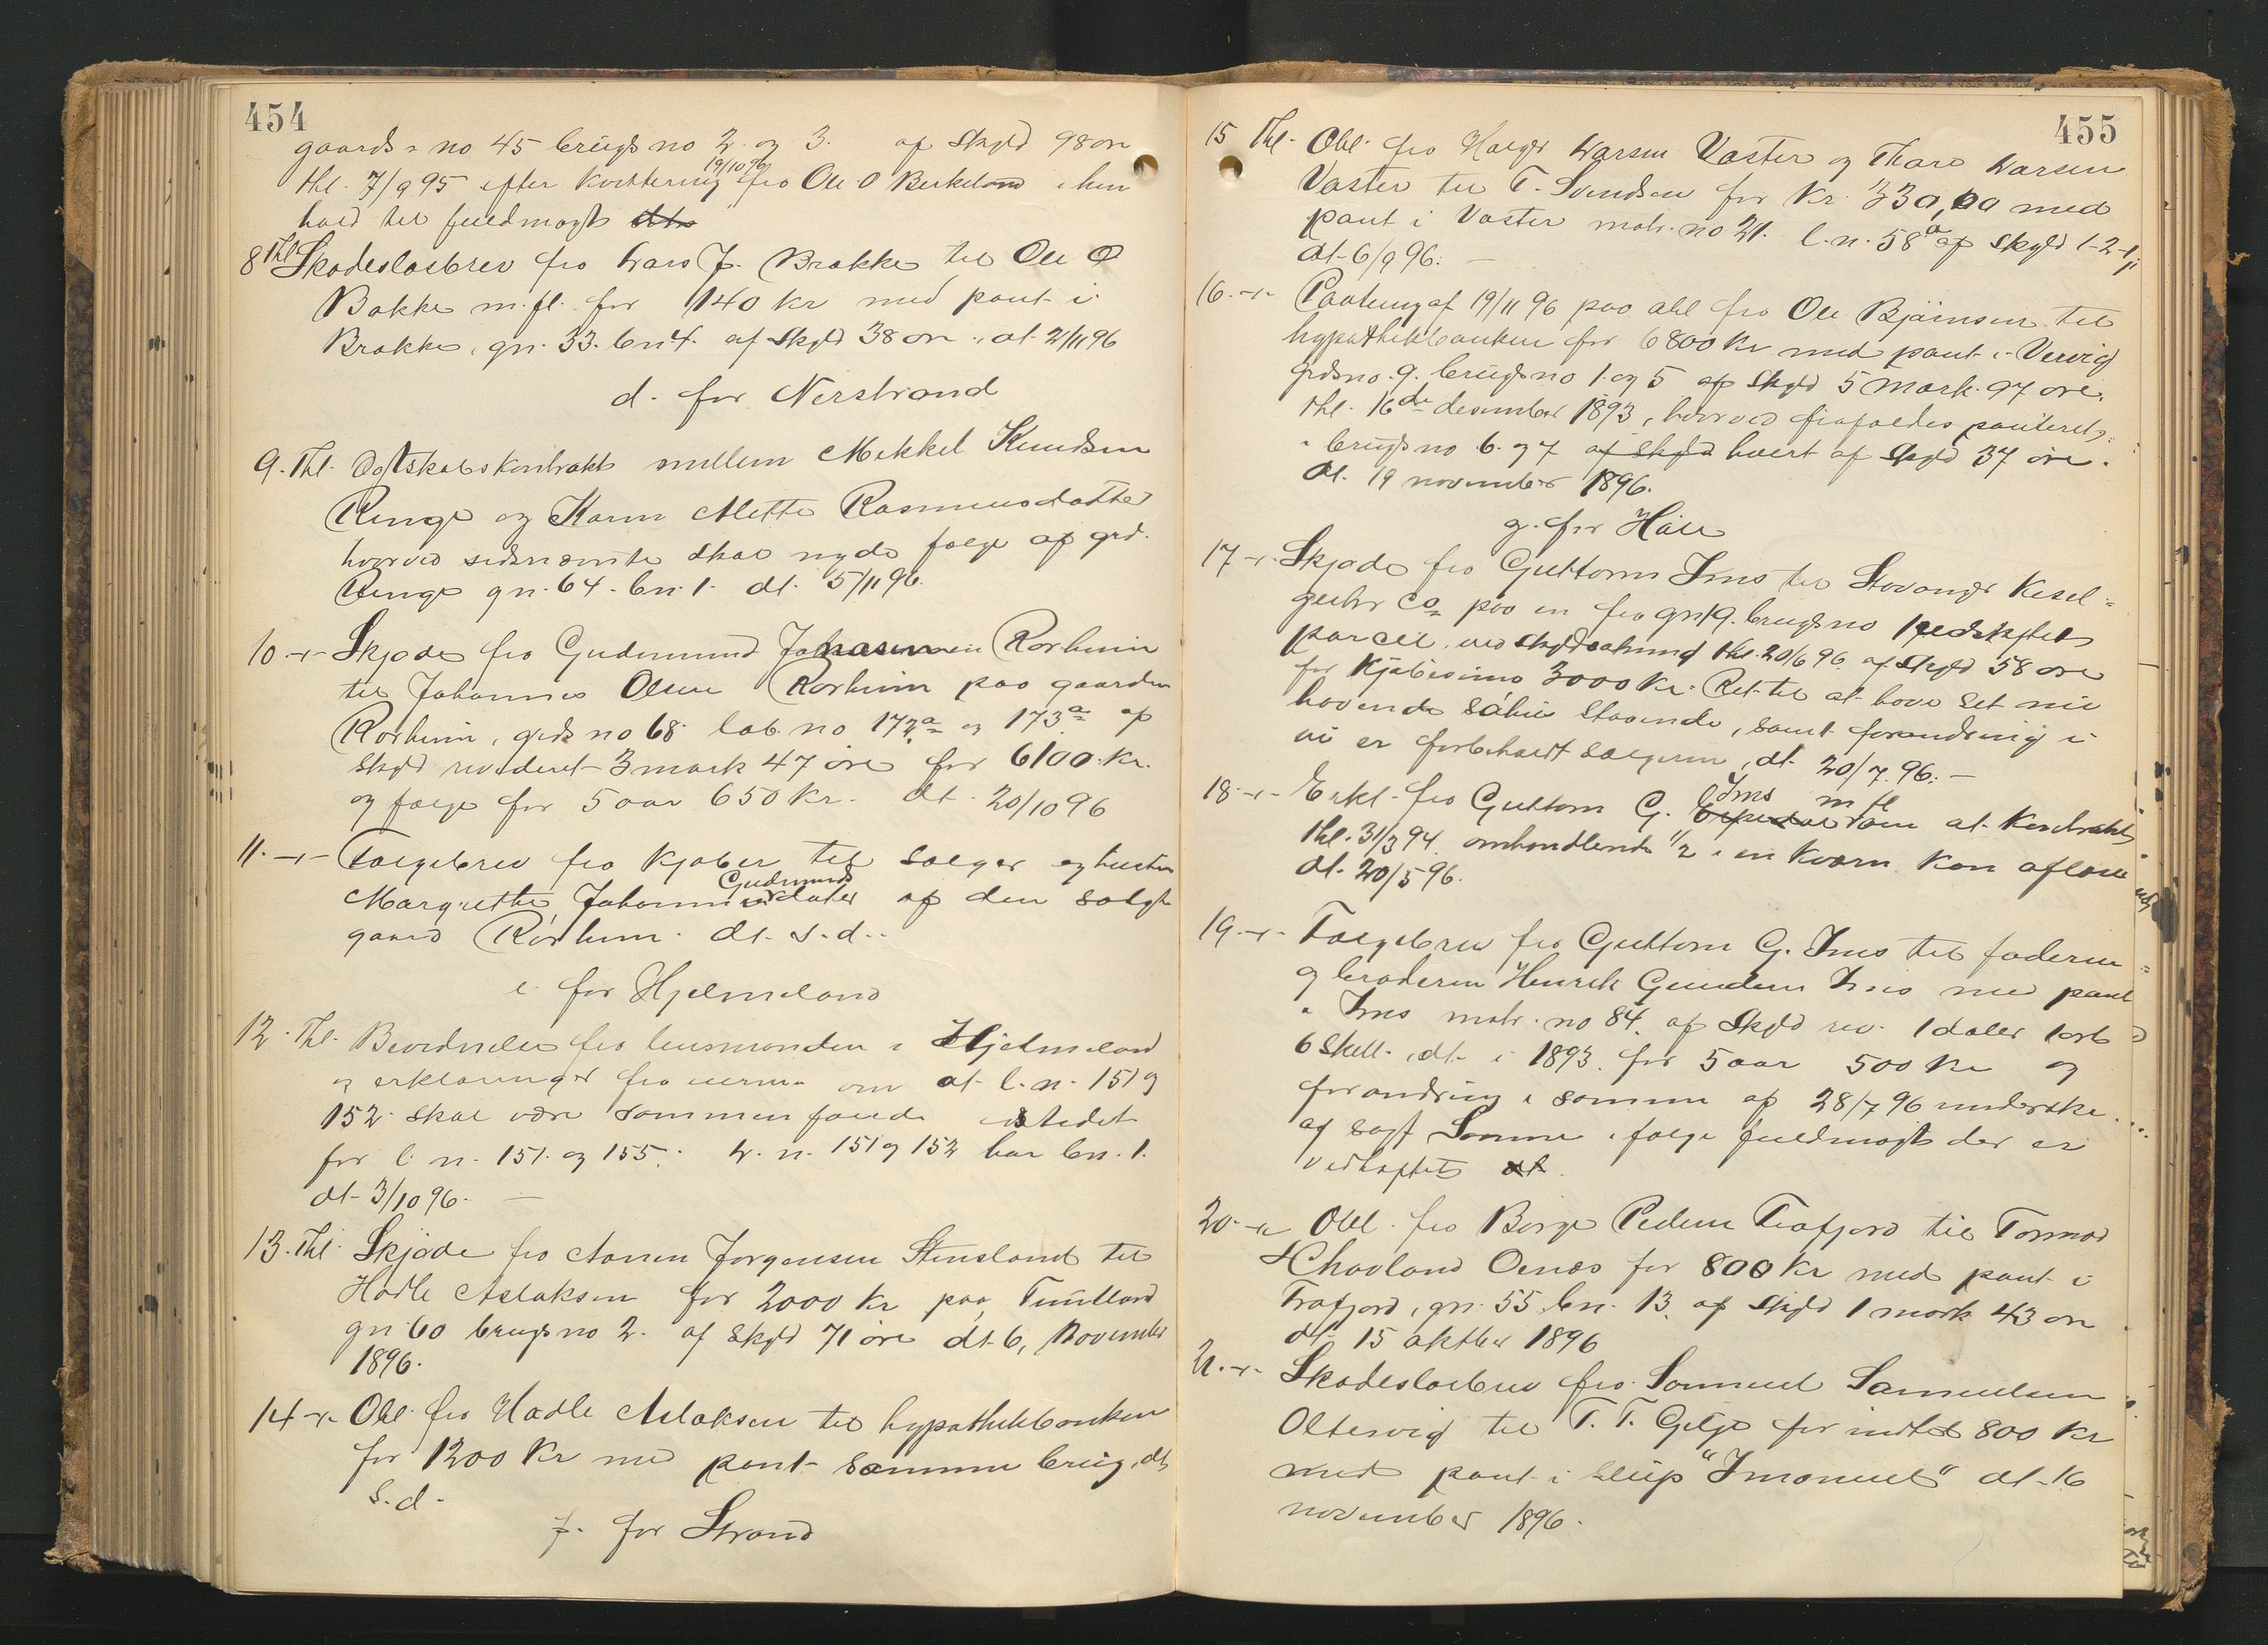 454
gaards-no 45 brugsno 2 og 3. af Skyld 98 øre
19/10 96
thl. 7/9 95 efter kvittering fra Ole O Berkeland i hen
hold til fuldmagt dto
8 Thl Skadesløsbrev fra Lars J. Brakke til Ole O
Bakke m.fl. for 140 kr med pant i
Brakke, gn. 33. bn 4. af Skyld 38 øre, dt. 2/11 96
d. for Nerstrand
9. Thl. Egtskabskontrakt mellem Mikkel Knudsen
Ringe og Karen Mette Rasmusdatter
hvorved sidsnævnte skal nyde følge af grd.
Ringe gn. 64. bn. 1. dt. 5/11 96.
10 -r- Skjøde fra Gudmund Johannesen Rørheim
til Johannes Olsen Rørheim paa gaarden
Rørheim, grds no 68 løb. no 172a og 173a af
skyld revideret 3 mark 47 øre for 6100 kr.
og følge for 5 aar 650 kr. dt. 20/10 96
11. -r- Følgebrev fra kjøber til sælger og hustru
Gudmunds
Margrethe Johannesdatter af den solgte
gaard Rørheim. dt. s.d..
e. for Hjelmeland
12. Thl. Bevidnelse fra lensmanden i Hjelmeland
og erklæringer fra eierne om at l.n. 151 og
152 skal være sammenføiede istedet
for l. n. 151. og 155. L. n. 151 og 152 har bn. 1.
dt 3/10 96. —
13. Thl. Skjøde fra Aanen Jørgensen Stensland til
Hadle Aslaksen for 2000 kr paa Tuntland
gn 60 brugsno 2. af skyld 71 øre dt 6, november
1896.
14 -r- Obl. fra Hadle Aslaksen til hypothekbanken
for 1200 kr med pant samme brug, dt
s.d.
f. for Strand
455
15 Thl. Obl. fra Holger Larsen Vaster og Thore Larsen
Vaster til T. Svendsen for kr. 330,00 med
pant i Vaster matr. no 21. l.n. 58a af skyld 1-2-1,
dt 6/9 96. —
16. -r- Paategn. af 19/11 96 paa obl fra Ole Bjørnsen til
hypothekbanken for 6800 kr med pant i Vervig
grdsno. 9. brugsno 1. og 5 af skyld 5 mark. 97 øre.
thl. 16de desember 1893, hvorved frafaldes panteret
i brugsno 6. og 7 af skyld hvert af skyld 37 øre.
dt. 19 november 1896.
g. for Høle
17 -r- Skjøde fra Guttorm Ims til Stavanger Kisel-
guhr Co paa en fra gn 19. brugsno 1 udskiftet
parcel, ved skylddeling thl. 20/6 96 af skyld 58 øre
for kjøbesum 3000 kr. Ret til at have sit nu
havende søhus staaende, samt forandring i
vei er forbeholdt sælgeren, dt 20/7. 96. —
18. -r- Erkl. fra Guttorm G. Ims m fl om at kontrakt
thl. 31/3 94. omhandlende 1/2 i en kværn kan aflæses
dt. 20/5 96.
19. -r- Følgebrev fra Guttorm G. Ims til faderen
og broderen Henrik Gundersen Ims med pant
i Ims matr. no 84. af skyld rev. 1 daler 1 ort
6 skill. dt. i 1893. for 5 aar 500 kr og
forandring i samme af 28/7 96 underskr.
af sogf Sømme ifølge fuldmagt der er
vedhæftet dt.
20. -r- Obl. fra Børge Pedersen Frafjord til Tormod
Haaland Oenæs for 800 kr med pant i
Frafjord, gn. 55 bn. 13. af skyld 1 mark 43 øre
dt 15 oktber 1896
21. -r- Skadesløsbrev fra Samuel Samuelsen
Oltesvig til T. T. Gilje for indtil 800 kr
med pant i slup "Imanuel" dt. 16
november 1896.